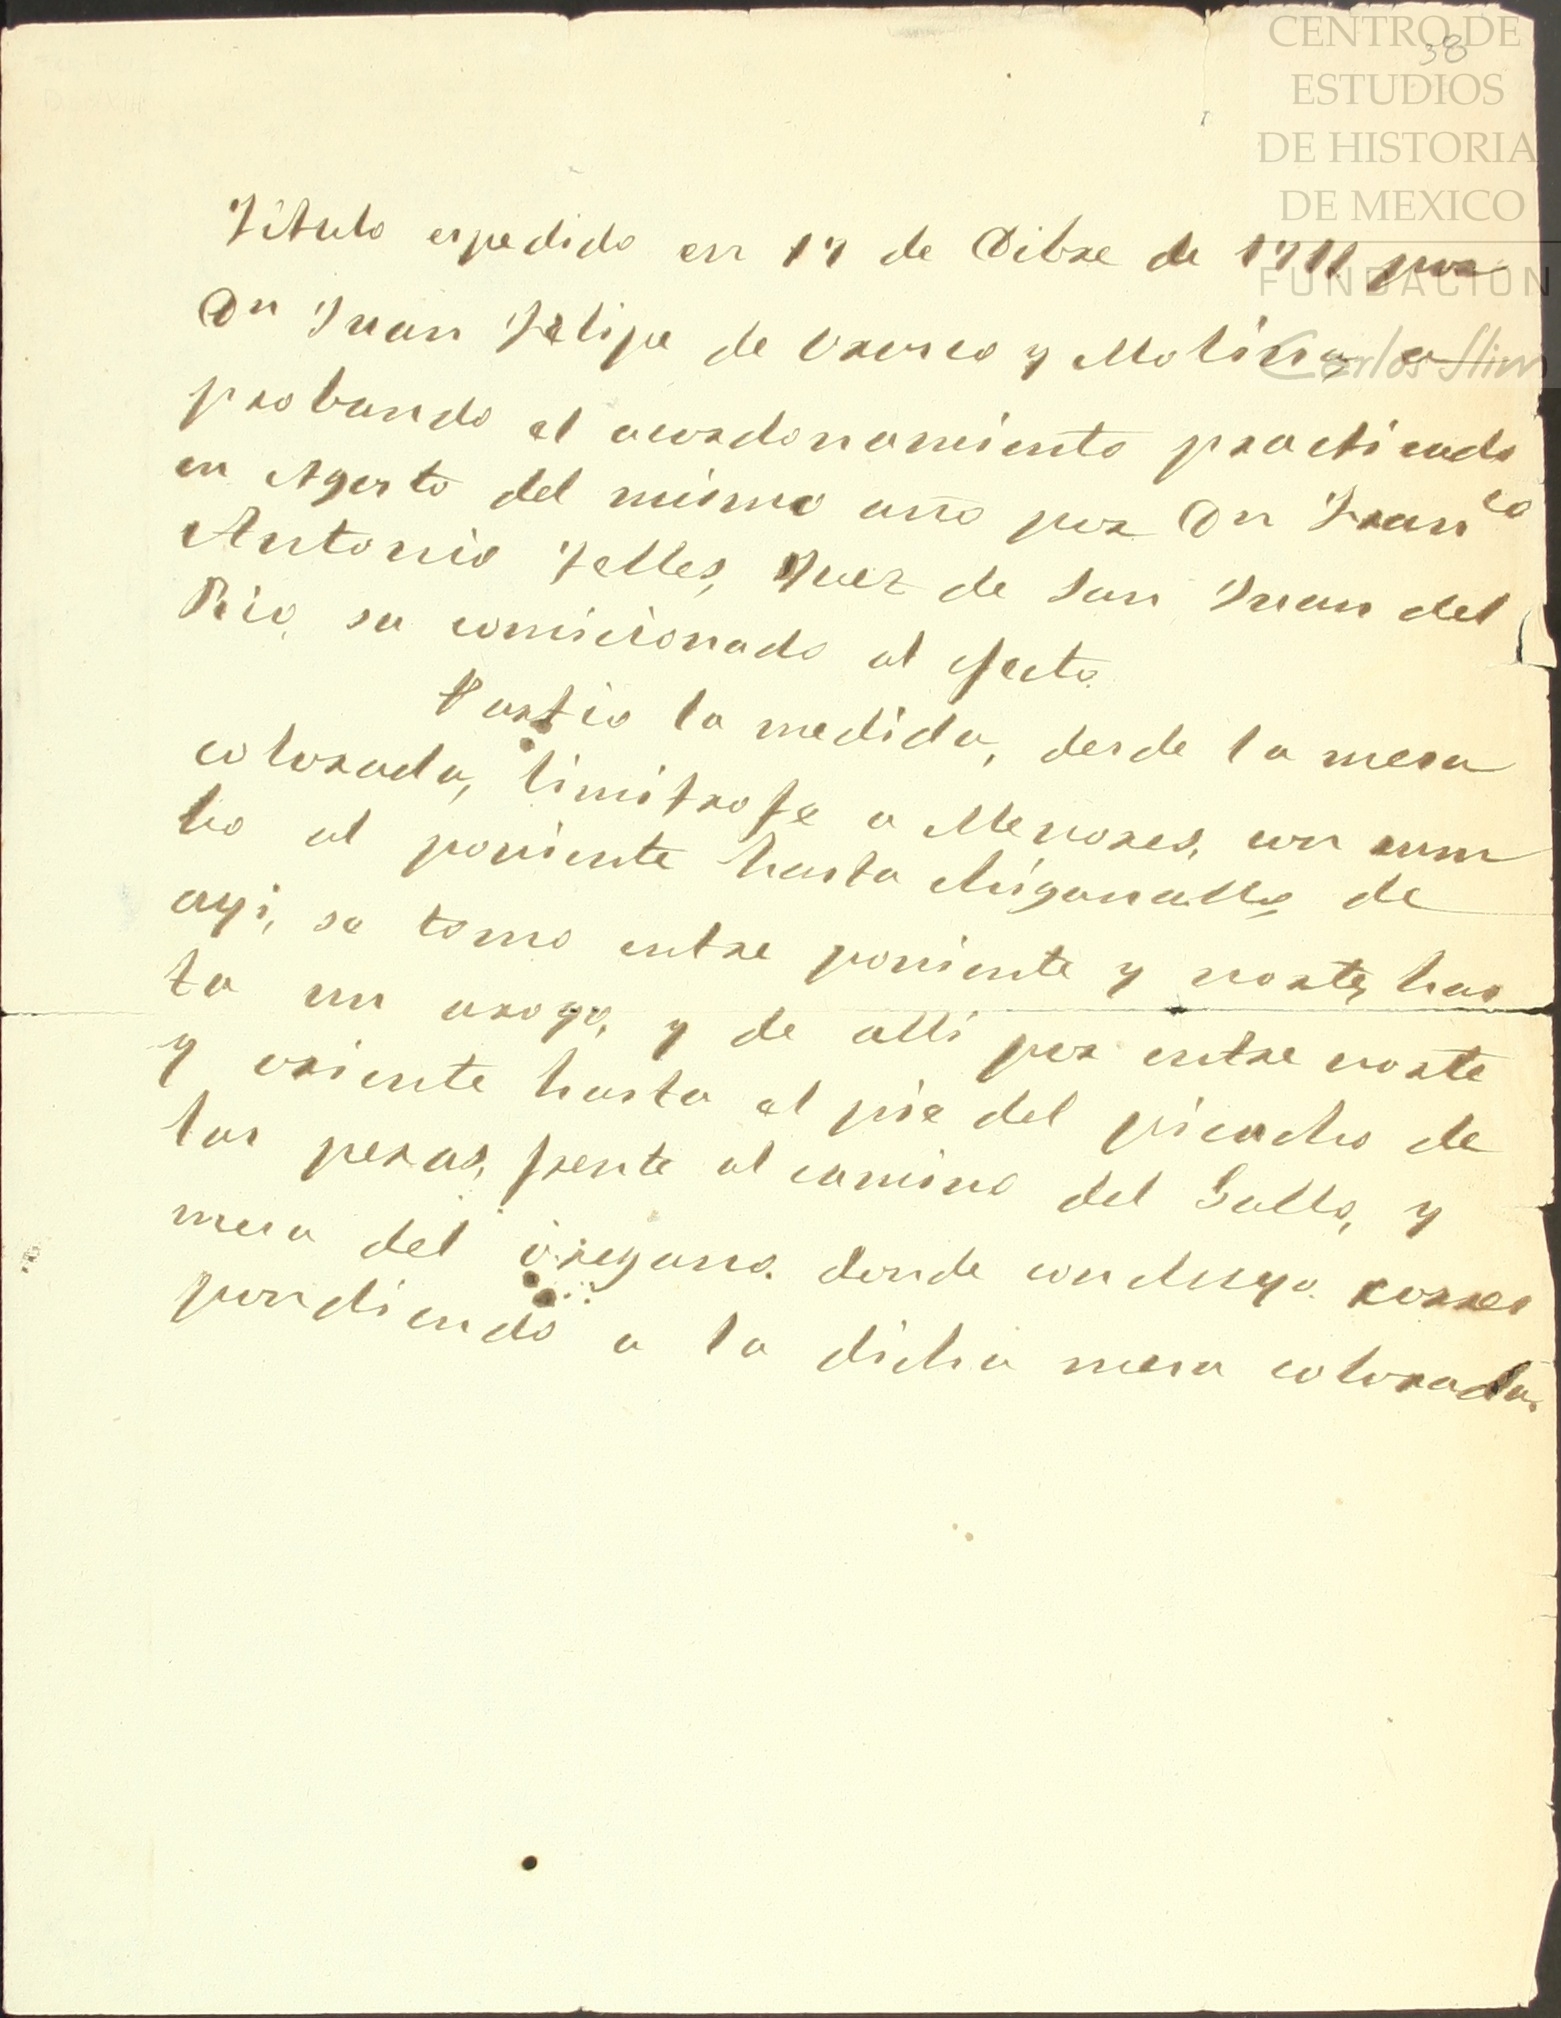 CENTRO DE
ESTUDIOS
DE HISTORIA
DE MEXICO
FUNDACION
Carlos Slim
38
Titulo espedido en 17 de Dibre de 1711 por
Dn Juan Felipe de Orosco y Molina, a
probando el acordonamiento practicado
en Agosto del mismo año por Dn Franco
Antonio Telles, Juez de San Juan del
Rio, su comicionado al efecto.
Partio la medida, desde la mesa
colorada, limitrofe a Menores, con rum
bo al poniente hasta de
ayi, se tomo entre poniente y norte, has
ta un aroyo, y de alli por entre norte
y oriente hasta el pie del picacho de
las peras, frente al camino del Gallo, y
mesa del oregano. donde concluyo. corres
pondiendo a la dicha mesa colorada.